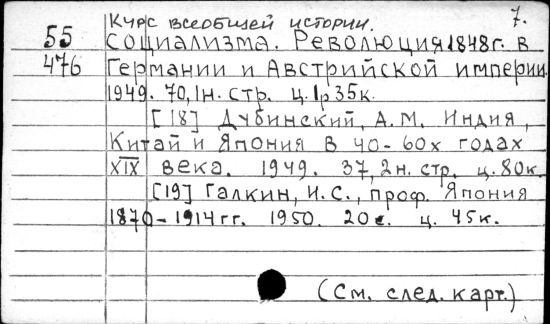 Курс всеобщей истории. 7.
55 социализма. Революция 1848г. в
476 Германии и Австрийской империи
1949. 70,1н. стр. ц. 1р 35к.
[18] Дубинский, А.М. Индия,
Китай и Япония в 40-60х годах
XIX века. 1949. 37,2н. стр. ц. 80к.
[19] Галкин, И.С., проф. Япония
1870-1914 гг. 1950. 20с. ц. 45к.
(См. след. карт.)